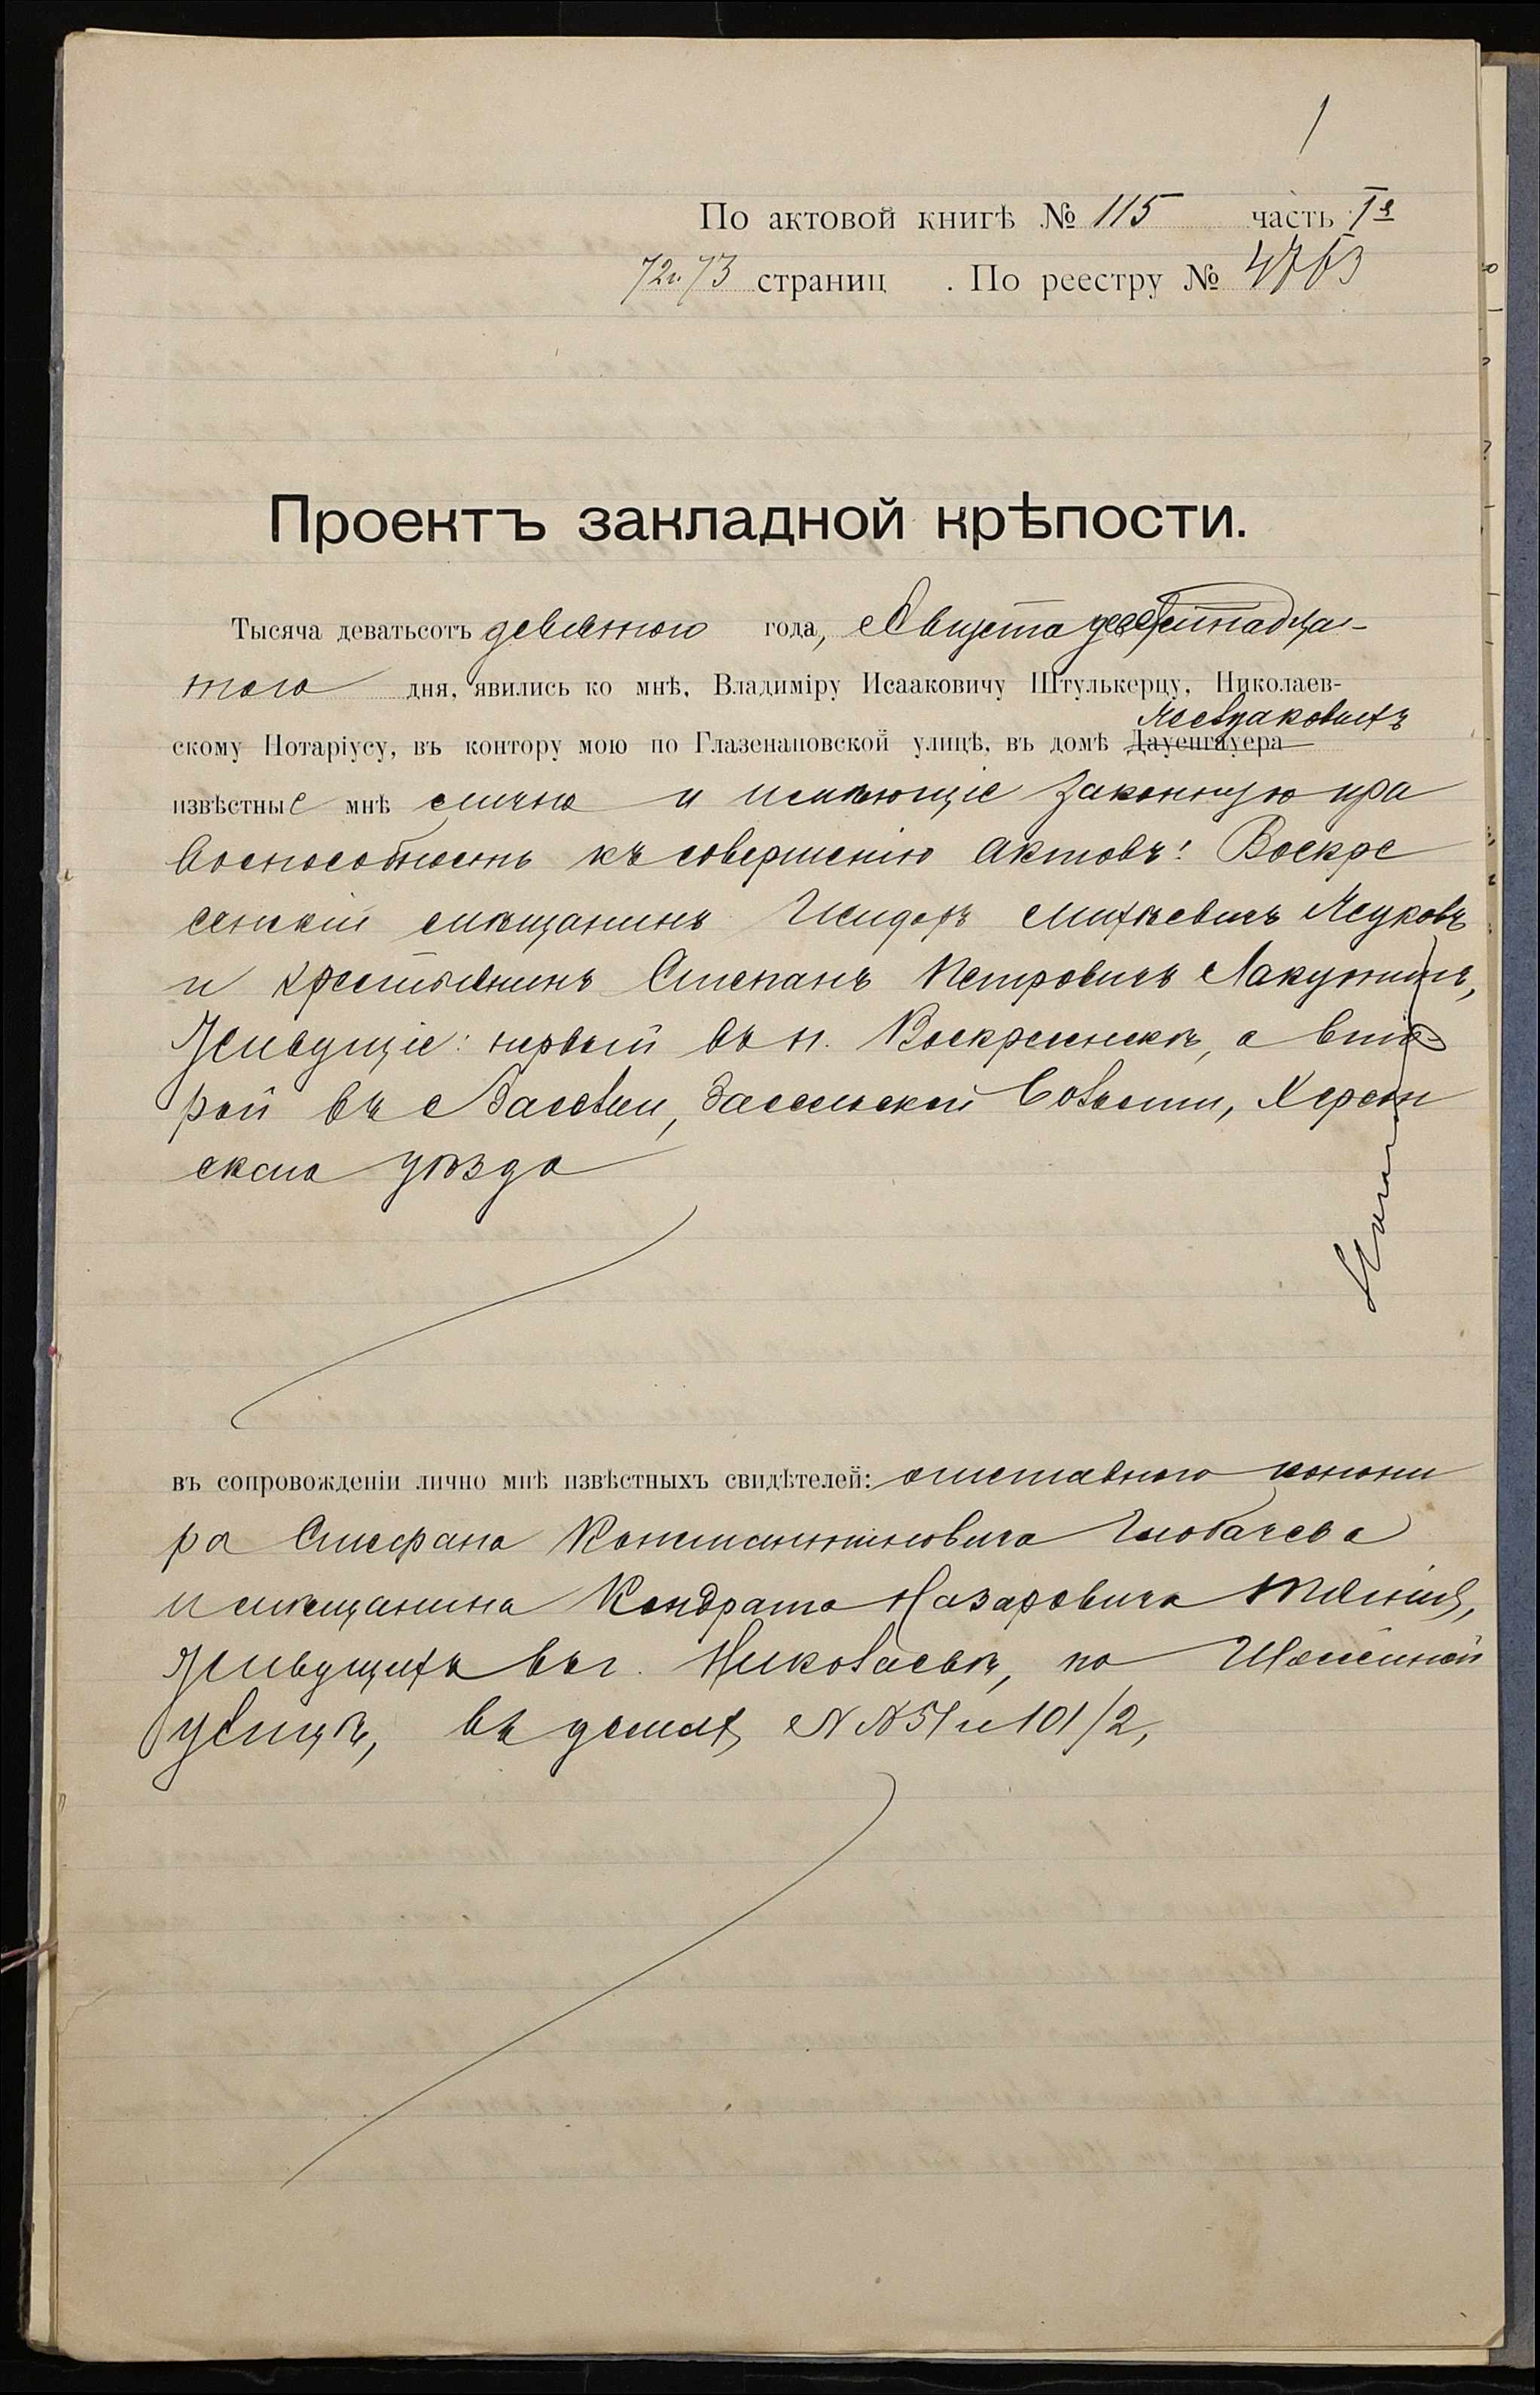 1
По актовой книгѣ № 115 часть Iя
72 и 73 страниц . По реестру № 4763
Проектъ закладной крѣпости.
Тысяча деватьсотъ девятого года, Августа девятнадца-
таго дня, явились ко мнѣ, Владиміру Исааковичу Штулькерцу, Николаев-
скому Нотаріусу, въ контору мою по Глазенаповской улицѣ, въ домѣ Дауенгауера
извѣстные мнѣ лично и имѣющіе законную пра
воспособность къ совершенію актовъ: Воскре
сенскій мѣщанинъ Исидоръ Михѣевичъ Жуковъ
и крестьянинъ Степанъ Петровичъ Лакужинъ,
Живущіе: первый въ м. Воскресенскѣ, а вто
рой въ с. Засельи, Засельской волости, Херсон
скаго уѣзда
въ сопровожденіи лично мнѣ извѣстныхъ свидѣтелей: отставного канони
ра Стефана Константиновича Глобачева
и мѣщанина Кондрата Назаровича
Живущихъ въ г. Николаевѣ, по
улицѣ, въ домахъ NN 51 и 101/2,